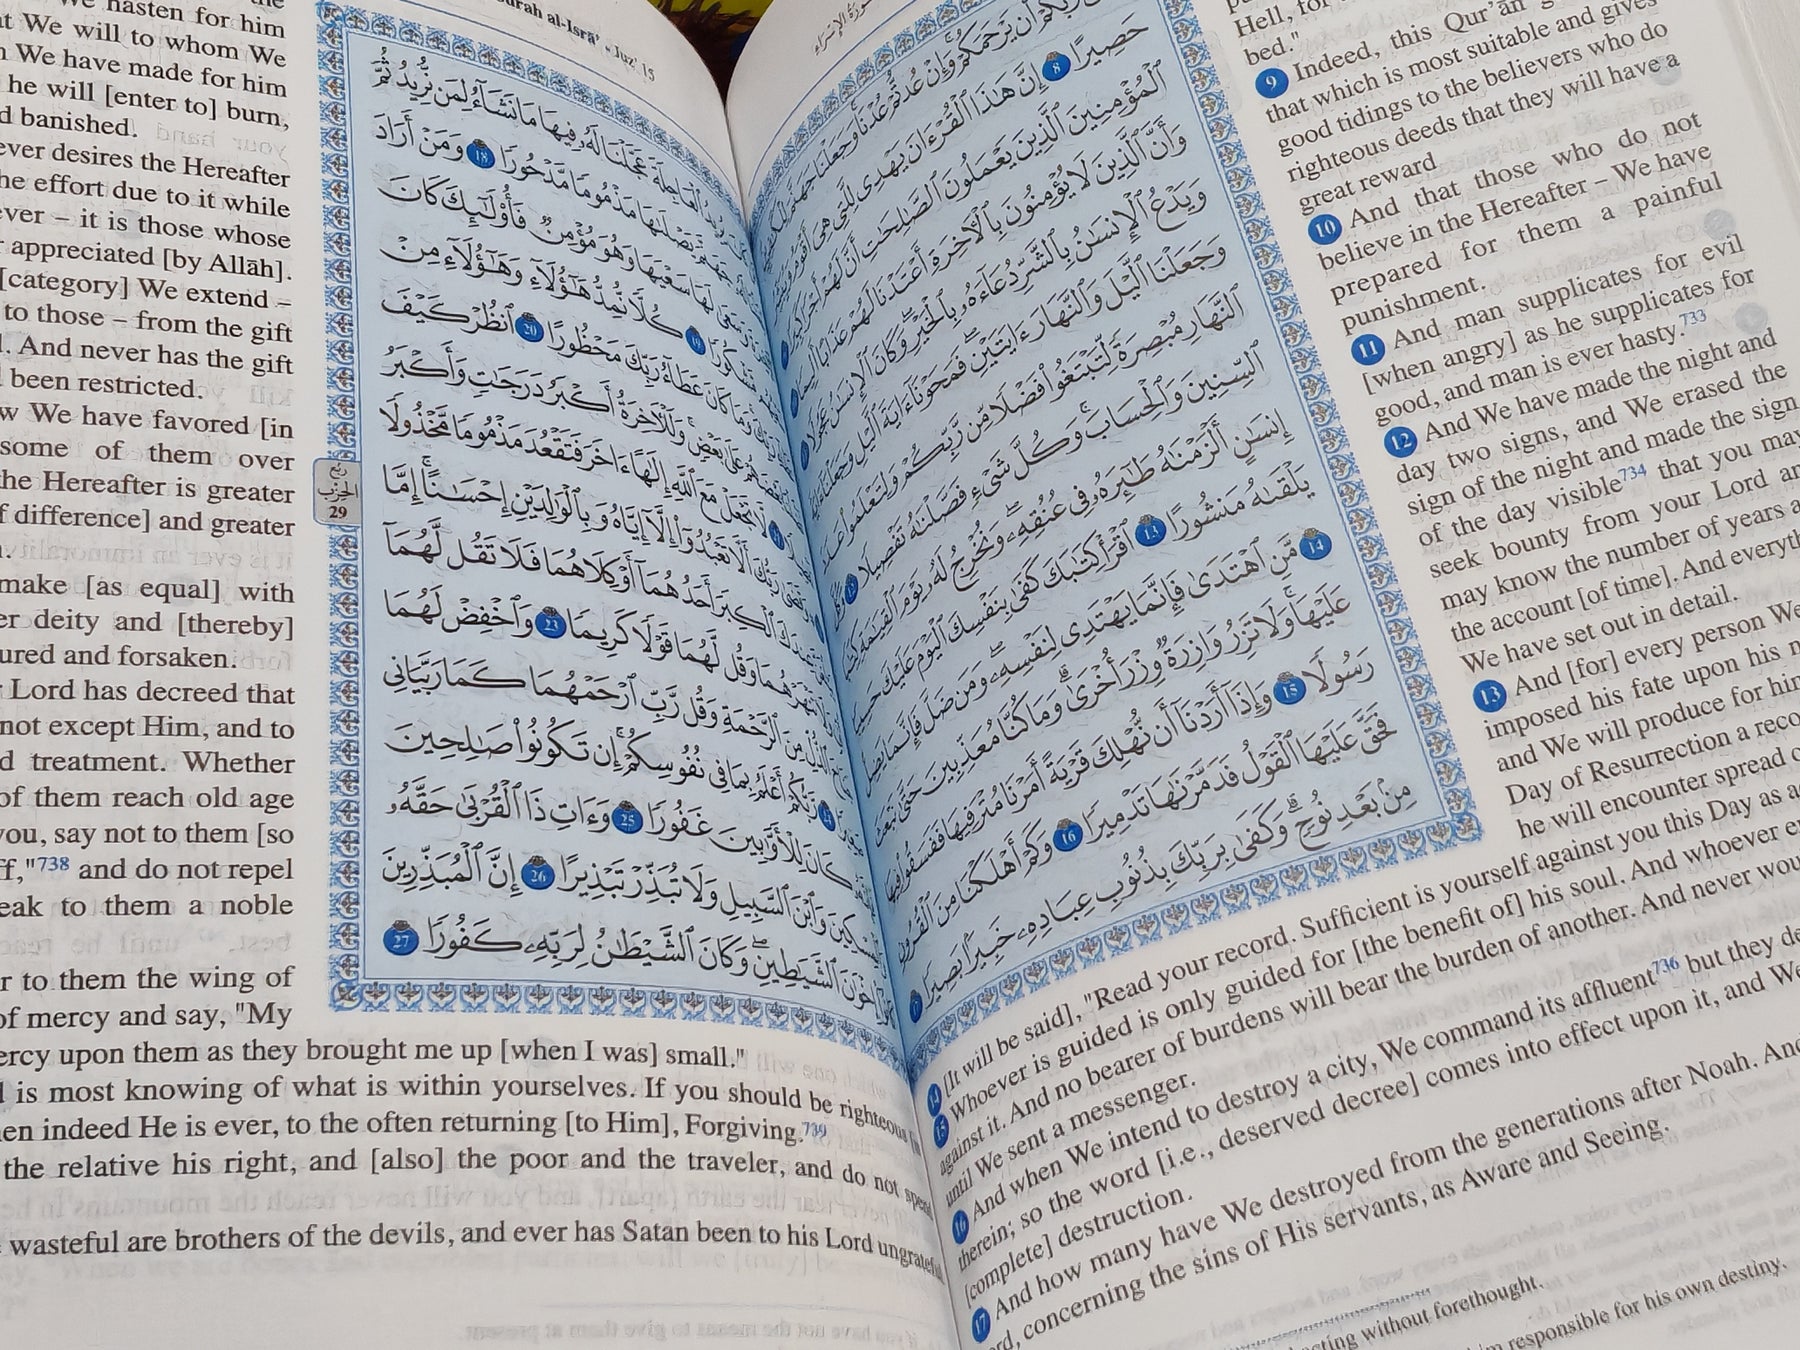 سُورَةُ الإِسْرَاء
أَن يَرْحَمَكُمْ وَإِنْ عُدتُّمْ عُدْنَا وَجَعَلْنَا جَهَنَّمَ
حَصِيرًا 8 إِنَّ هَٰذَا ٱلْقُرْءَانَ يَهْدِى لِلَّتِى هِىَ أَقْوَمُ
ٱلْمُؤْمِنِينَ ٱلَّذِينَ يَعْمَلُونَ ٱلصَّٰلِحَٰتِ أَنَّ لَهُمْ أَجْرًا
وَأَنَّ ٱلَّذِينَ لَا يُؤْمِنُونَ بِٱلْءَاخِرَةِ أَعْتَدْنَا لَهُمْ عَذَابًا أَلِيمًا
وَيَدْعُ ٱلْإِنسَٰنُ بِٱلشَّرِّ دُعَآءَهُۥ بِٱلْخَيْرِ وَكَانَ ٱلْإِنسَٰنُ عَجُولًا
وَجَعَلْنَا ٱلَّيْلَ وَٱلنَّهَارَ ءَايَتَيْنِ فَمَحَوْنَآ ءَايَةَ ٱلَّيْلِ وَجَعَلْنَآ ءَايَةَ
ٱلنَّهَارِ مُبْصِرَةً لِّتَبْتَغُوا۟ فَضْلًا مِّن رَّبِّكُمْ وَلِتَعْلَمُوا۟ عَدَدَ
ٱلسِّنِينَ وَٱلْحِسَابَ وَكُلَّ شَىْءٍ فَصَّلْنَٰهُ تَفْصِيلًا 12 وَكُلَّ
إِنسَٰنٍ أَلْزَمْنَٰهُ طَٰٓئِرَهُۥ فِى عُنُقِهِۦ وَنُخْرِجُ لَهُۥ يَوْمَ ٱلْقِيَٰمَةِ كِتَٰبًا
يَلْقَىٰهُ مَنشُورًا 13 ٱقْرَأْ كِتَٰبَكَ كَفَىٰ بِنَفْسِكَ ٱلْيَوْمَ عَلَيْكَ حَسِيبًا
14 مَّنِ ٱهْتَدَىٰ فَإِنَّمَا يَهْتَدِى لِنَفْسِهِۦ وَمَن ضَلَّ فَإِنَّمَا يَضِلُّ
عَلَيْهَا وَلَا تَزِرُ وَازِرَةٌ وِزْرَ أُخْرَىٰ وَمَا كُنَّا مُعَذِّبِينَ حَتَّىٰ نَبْعَثَ
رَسُولًا 15 وَإِذَآ أَرَدْنَآ أَن نُّهْلِكَ قَرْيَةً أَمَرْنَا مُتْرَفِيهَا فَفَسَقُوا۟ فِيهَا
فَحَقَّ عَلَيْهَا ٱلْقَوْلُ فَدَمَّرْنَٰهَا تَدْمِيرًا 16 وَكَمْ أَهْلَكْنَا مِنَ ٱلْقُرُونِ
مِنۢ بَعْدِ نُوحٍ وَكَفَىٰ بِرَبِّكَ بِذُنُوبِ عِبَادِهِۦ خَبِيرًۢا بَصِيرًا 17
Hell, for
bed."
9 Indeed, this Qur'ān
that which is most suitable and gives
good tidings to the believers who do
righteous deeds that they will have a
great reward
10 And that those who do not
believe in the Hereafter – We have
prepared for them a painful
punishment.
11 And man supplicates for evil
[when angry] as he supplicates for
good, and man is ever hasty.733
12 And We have made the night and
day two signs, and We erased the
sign of the night and made the sign
of the day visible734 that you may
seek bounty from your Lord and
may know the number of years
the account [of time]. And everything
We have set out in detail.
13 And [for] every person We
imposed his fate upon his
and We will produce for him
Day of Resurrection a record
he will encounter spread
14 [It will be said], "Read your record. Sufficient is yourself against you this Day as
15 Whoever is guided is only guided for [the benefit of] his soul. And whoever
against it. And no bearer of burdens will bear the burden of another. And never would
until We sent a messenger.
16 And when We intend to destroy a city, We command its affluent736 but they
therein; so the word [i.e., deserved decree] comes into effect upon it, and We
[complete] destruction.
17 And how many have We destroyed from the generations after Noah. And
concerning the sins of His servants, as Aware and Seeing.
acting without forethought.
responsible for his own destiny.
Sūrah al-Isrā' • Juz' 15
ٱلْعَاجِلَةَ عَجَّلْنَا لَهُۥ فِيهَا مَا نَشَآءُ لِمَن نُّرِيدُ ثُمَّ
جَهَنَّمَ يَصْلَىٰهَا مَذْمُومًا مَّدْحُورًا 18 وَمَنْ أَرَادَ
وَسَعَىٰ لَهَا سَعْيَهَا وَهُوَ مُؤْمِنٌ فَأُو۟لَٰٓئِكَ كَانَ
مَّشْكُورًا 19 كُلًّا نُّمِدُّ هَٰٓؤُلَآءِ وَهَٰٓؤُلَآءِ مِنْ
وَمَا كَانَ عَطَآءُ رَبِّكَ مَحْظُورًا 20 ٱنظُرْ كَيْفَ
بَعْضَهُمْ عَلَىٰ بَعْضٍ وَلَلْءَاخِرَةُ أَكْبَرُ دَرَجَٰتٍ وَأَكْبَرُ
لَّا تَجْعَلْ مَعَ ٱللَّهِ إِلَٰهًا ءَاخَرَ فَتَقْعُدَ مَذْمُومًا مَّخْذُولًا
رَبُّكَ أَلَّا تَعْبُدُوٓا۟ إِلَّآ إِيَّاهُ وَبِٱلْوَٰلِدَيْنِ إِحْسَٰنًا إِمَّا
عِندَكَ ٱلْكِبَرَ أَحَدُهُمَآ أَوْ كِلَاهُمَا فَلَا تَقُل لَّهُمَآ
تَنْهَرْهُمَا وَقُل لَّهُمَا قَوْلًا كَرِيمًا 23 وَٱخْفِضْ لَهُمَا
ٱلذُّلِّ مِنَ ٱلرَّحْمَةِ وَقُل رَّبِّ ٱرْحَمْهُمَا كَمَا رَبَّيَانِى
24 رَّبُّكُمْ أَعْلَمُ بِمَا فِى نُفُوسِكُمْ إِن تَكُونُوا۟ صَٰلِحِينَ
كَانَ لِلْأَوَّٰبِينَ غَفُورًا 25 وَءَاتِ ذَا ٱلْقُرْبَىٰ حَقَّهُۥ
وَٱبْنَ ٱلسَّبِيلِ وَلَا تُبَذِّرْ تَبْذِيرًا 26 إِنَّ ٱلْمُبَذِّرِينَ
إِخْوَٰنَ ٱلشَّيَٰطِينِ وَكَانَ ٱلشَّيْطَٰنُ لِرَبِّهِۦ كَفُورًا 27
ربع
الحزب
29
We hasten for him
We will to whom We
We have made for him
he will [enter to] burn,
banished.
desires the Hereafter
effort due to it while
– it is those whose
appreciated [by Allāh].
[category] We extend –
to those – from the gift
And never has the gift
been restricted.
We have favored [in
some of them over
the Hereafter is greater
difference] and greater
make [as equal] with
deity and [thereby]
and forsaken.
Lord has decreed that
not except Him, and to
treatment. Whether
of them reach old age
you, say not to them [so
"738 and do not repel
to them a noble
to them the wing of
of mercy and say, "My
upon them as they brought me up [when I was] small."
is most knowing of what is within yourselves. If you should be righteous
indeed He is ever, to the often returning [to Him], Forgiving.739
the relative his right, and [also] the poor and the traveler, and do not spend
wasteful are brothers of the devils, and ever has Satan been to his Lord